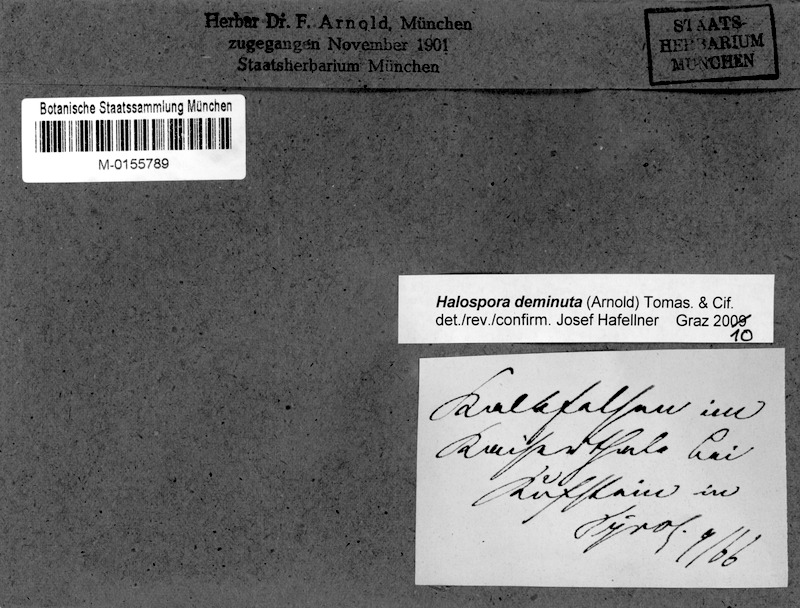 Herbar Dr. F. Arnold, München
zugegangen November 1901
Staatsherbarium München
STAATS-
HERBARIUM
MÜNCHEN
Botanische Staatssammlung München
M-0155789
Halospora deminuta (Arnold) Tomas. & Cif.
det./rev./confirm. Josef Hafellner Graz 2009
10
Kalkfelsen im
Kaiserthale bei
Kufstein in
Tyrol. 9/66